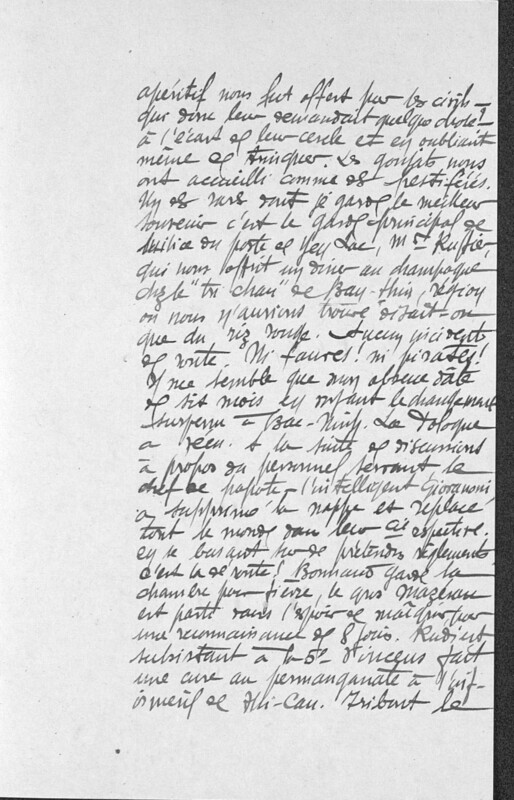 apéritif nous fut offert par les civils –
qui donc leur demandait quelque chose!
à l'écart de leur cercle et en oubliant
même de trinquer. Les goujats nous
ont accueilli comme des pestiférés.
Un des rares dont je garde le meilleur
souvenir c'est le garde principal de
milice du poste de Yen Lac, Mr
qui nous offrit un diner au champagne
chez le "tri chau" de Bay-, région
où nous n'aurions trouvé disait-on
que du riz rouge. Aucun incident
de route. Ni fauves! ni pirates!
Il me semble que mon absence date
de six mois en voyant le changement
survenu à Bac-Ninh. La Popote
a vécu. A la suite de discussions
à propos du personnel servant le
chef de popote – l'intelligent Giovannoni
a supprimé la nappe et replacé
tout le monde dans leur Cie respective.
en se basant sur de prétendus règlements
c'est la déroute! Bonnaud garde la
chambre pour fièvre, le gros Mazeran
est parti dans l'espoir de maigrir par
une reconnaissance de 8 jours.
subsistant à la 5e d'Inceus fait
une cure au permanganate à l'inf-
irmerie de Thi-Cau. Tribout le